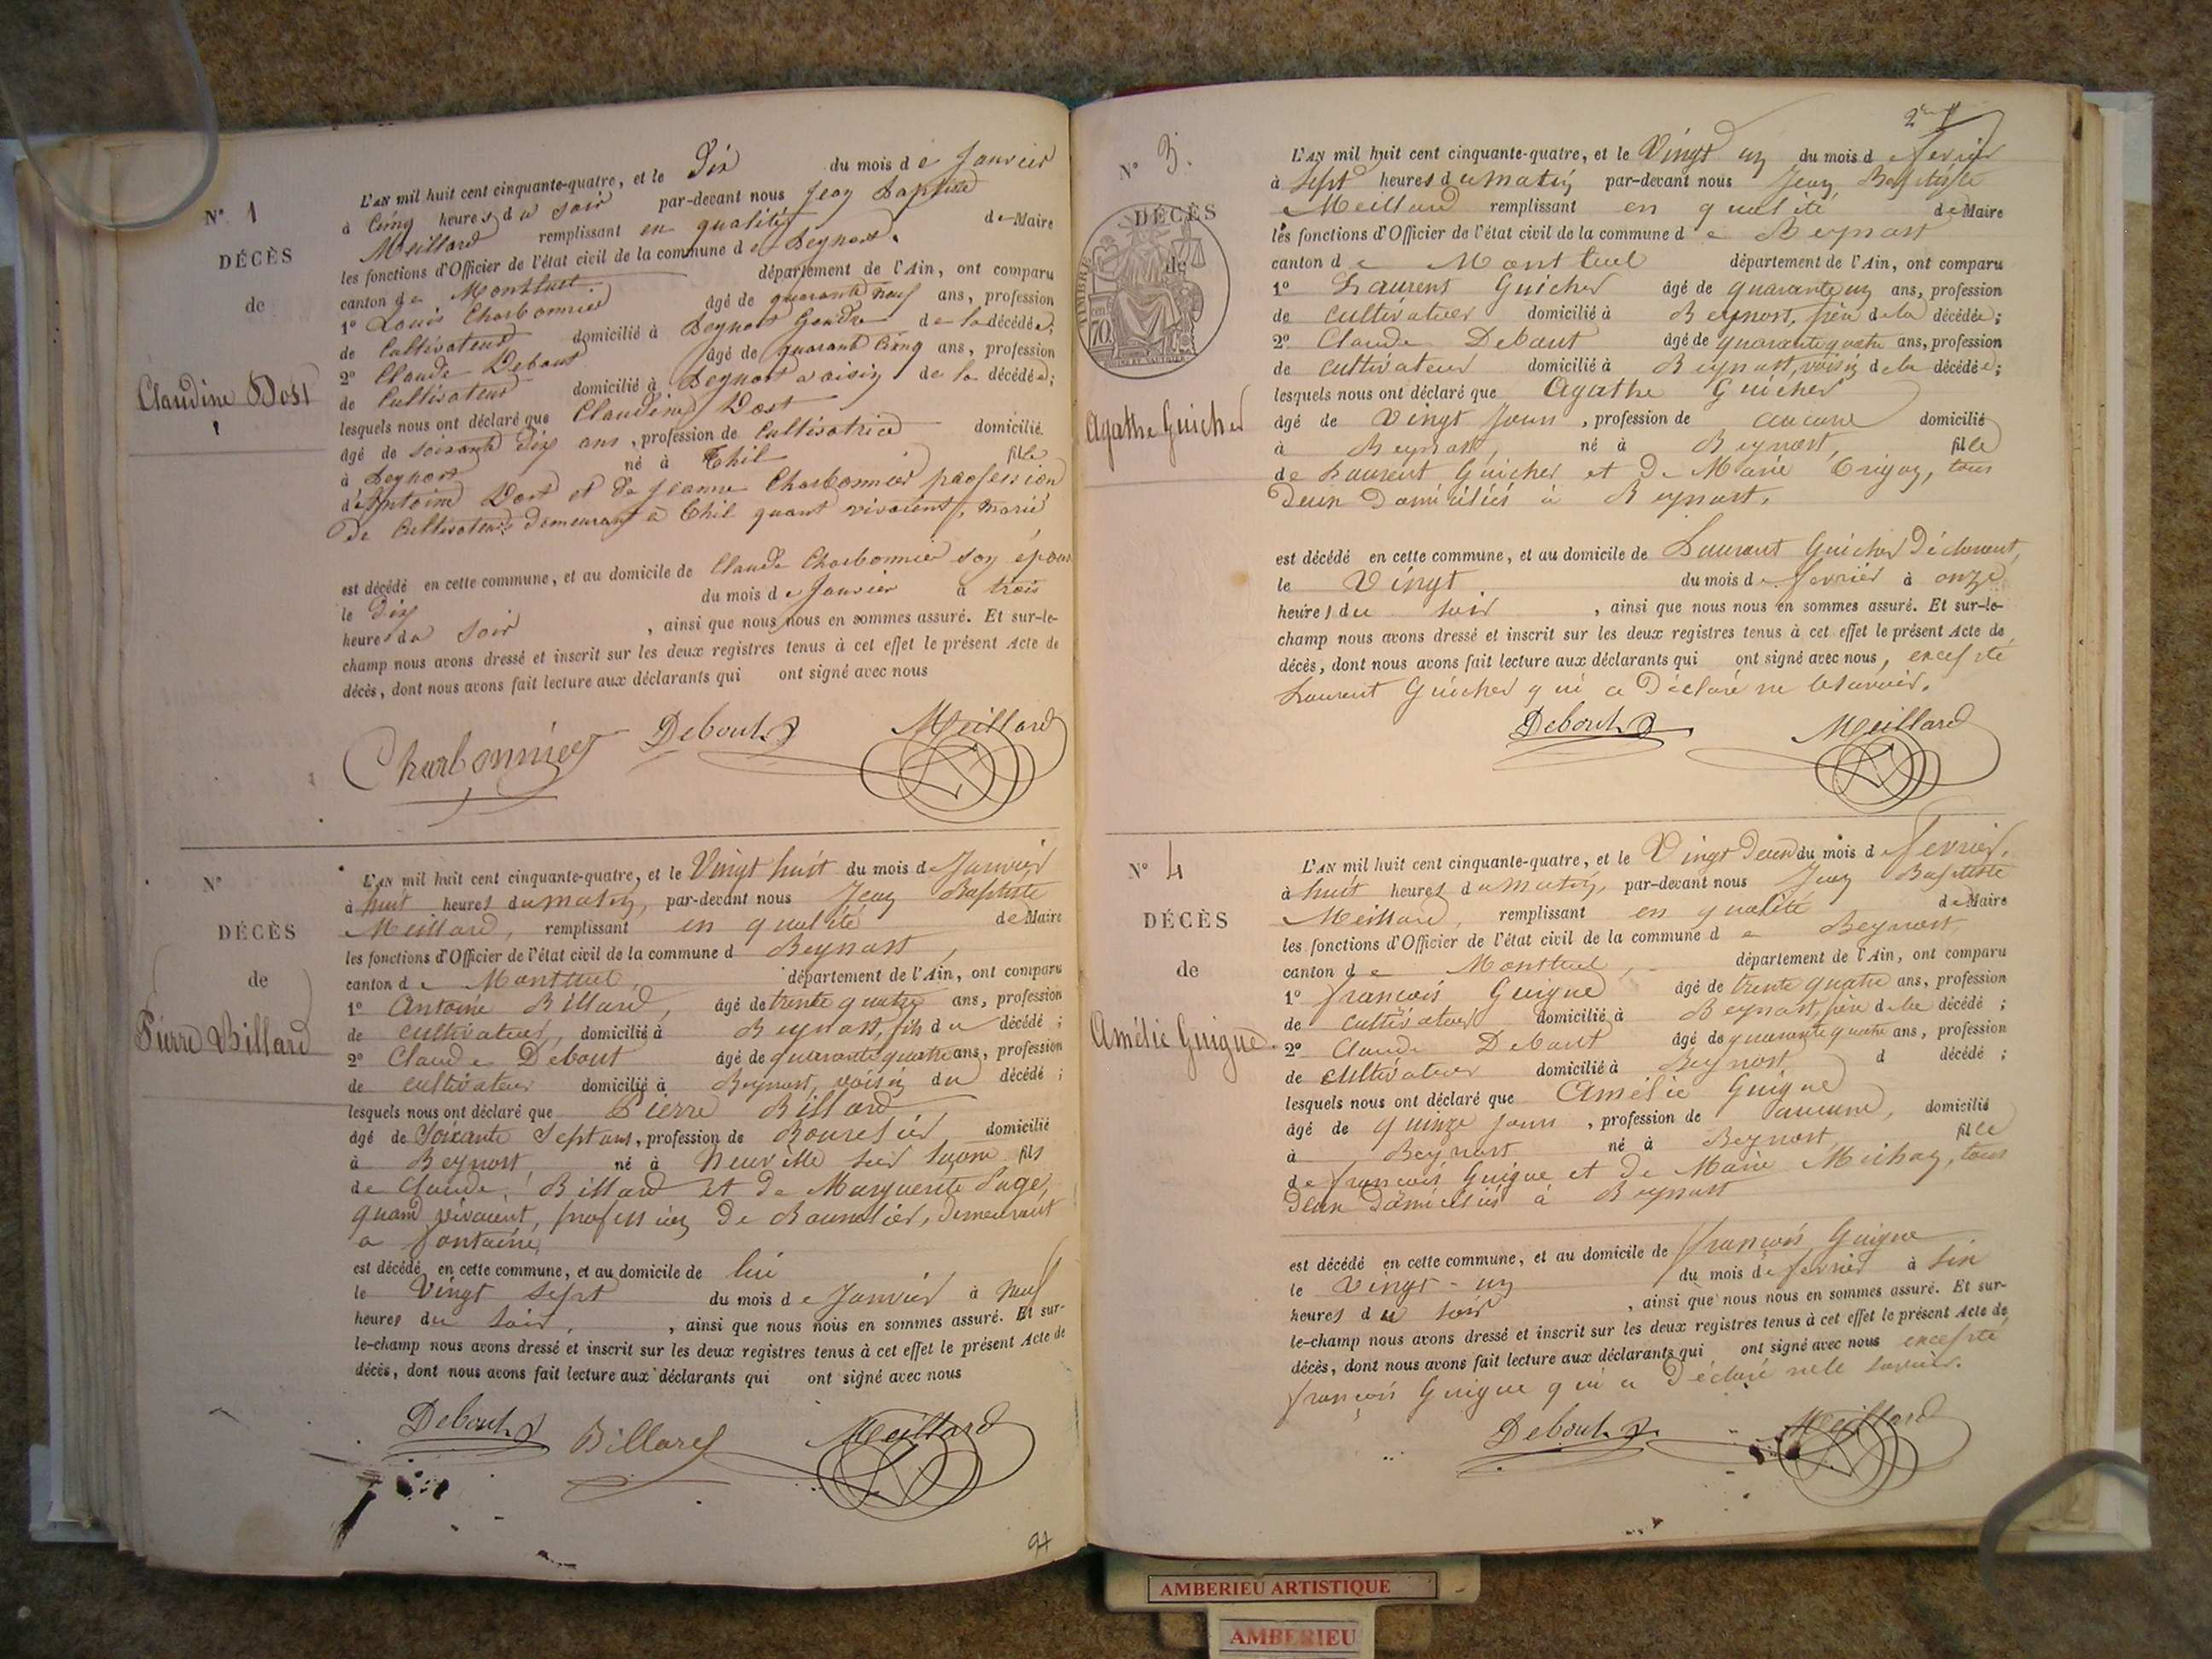 N° 1
DÉCÈS
de
Claudine Dost
L'AN mil huit cent cinquante-quatre, et le Dix du mois de Janvier
à Cinq heures du soir par-devant nous Jean Baptiste
Meillard remplissant en qualité de Maire
les fonctions d'Officier de l'état civil de la commune de Beynost.
canton de Montluel. département de l'Ain, ont comparu
1° Louis Charbonnier âgé de quarante neuf ans, profession
de Cultivateur domicilié à Beynost Gendre de la décédée;
2° Claude Debout âgé de quarante Cinq ans, profession
de Cultivateur domicilié à Beynost voisin de la décédée;
lesquels nous ont déclaré que Claudine Dost
âgé de soixante dix ans, profession de Cultivatrice domicilié
à Beynost né à Thil fille
d'Antoine Dost et de Jeanne Charbonnier profession
de Cultivateurs demeurant à Thil quant vivaient, marié
est décédé en cette commune, et au domicile de Claude Charbonnier son époux
le Dix du mois de Janvier à trois
heures du soir, ainsi que nous nous en sommes assuré. Et sur-le-
champ nous avons dressé et inscrit sur les deux registres tenus à cet effet le présent Acte de
décès, dont nous avons fait lecture aux déclarants qui ont signé avec nous
Charbonnier Debout Meillard
N°
DÉCÈS
de
Pierre Billard
L'AN mil huit cent cinquante-quatre, et le Vingt huit du mois de Janvier
à huit heures du matin, par-devant nous Jean Baptiste
Meillard, remplissant en qualité de Maire
les fonctions d'Officier de l'état civil de la commune d Beynost,
canton de Montluel, département de l'Ain, ont comparu
1° Antoine Billard, âgé de trente quatre ans, profession
de cultivateur, domicilié à Beynost, fils du décédé;
2° Claude Debout âgé de quarante quatre ans, profession
de cultivateur domicilié à Beynost, voisin du décédé;
lesquels nous ont déclaré que Pierre Billard
âgé de Soixante Sept ans, profession de Bourelier domicilié
à Beynost, né à Neuville sur Saone fils
de Claude Billard et de Marguerite Page,
quand vivaient, profession de Bourrelier, demeurant
a fontaine,
est décédé en cette commune, et au domicile de lui
le Vingt Sept du mois de Janvier à neuf
heures du Soir, ainsi que nous nous en sommes assuré. Et sur-
le-champ nous avons dressé et inscrit sur les deux registres tenus à cet effet le présent Acte de
décès, dont nous avons fait lecture aux déclarants qui ont signé avec nous
Debout Billard Meillard
94
N° 3.
DÉCÈS
de
TIMBRE
70
Agathe Guicher
L'AN mil huit cent cinquante-quatre, et le Vingt un du mois de fevrier
à Sept heures du matin par-devant nous Jean Baptiste
Meillard remplissant en qualité de Maire
les fonctions d'Officier de l'état civil de la commune de Beynost
canton de Montluel département de l'Ain, ont comparu
1° Laurent Guicher âgé de quarante un ans, profession
de cultivateur domicilié à Beynost, père de la décédée;
2° Claude Debout âgé de quarante quatre ans, profession
de cultivateur domicilié à Beynost, voisin de la décédée;
lesquels nous ont déclaré que Agathe Guicher
âgé de Vingt Jours, profession de aucune domicilié
à Beynost, né à Beynost, fille
de Laurent Guicher et de Marie, tous
deux Domiciliés à Beynost,
est décédé en cette commune, et au domicile de Laurent Guicher déclarant,
le Vingt du mois de fevrier à onze
heures du soir, ainsi que nous nous en sommes assuré. Et sur-le-
champ nous avons dressé et inscrit sur les deux registres tenus à cet effet le présent Acte de
décès, dont nous avons fait lecture aux déclarants qui ont signé avec nous, excepté
Laurent Guicher qui a Déclaré ne le savoir.
Debout Meillard
N° 4
DÉCÈS
de
Amélie Guigue.
L'AN mil huit cent cinquante-quatre, et le Vingt deux du mois de fevrier.
à huit heures du matin, par-devant nous Jean Baptiste
Meillard, remplissant en qualité de Maire
les fonctions d'Officier de l'état civil de la commune de Beynost,
canton de Montluel, département de l'Ain, ont comparu
1° françois Guigue âgé de trente quatre ans, profession
de cultivateur domicilié à Beynost, père de la décédé;
2° Claude Debout âgé de quarante quatre ans, profession
de cultivateur domicilié à Beynost d décédé;
lesquels nous ont déclaré que Amélie Guigue
âgé de quinze jours, profession de aucune, domicilié
à Beynost né à Beynost fille
de françois Guigue et de Marie Michoy, tous
deux domiciliés à Beynost
est décédé en cette commune, et au domicile de françois Guigue
le Vingt-un du mois de fevrier à six
heures du soir, ainsi que nous nous en sommes assuré. Et sur-
le-champ nous avons dressé et inscrit sur les deux registres tenus à cet effet le présent Acte de
décès, dont nous avons fait lecture aux déclarants qui ont signé avec nous excepté
françois Guigue qui a Déclaré ne le savoir.
Debout Meillard
AMBERIEU ARTISTIQUE
AMBERIEU